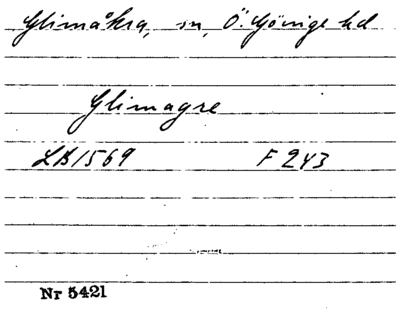 Glimåkra, sn, Ö. Göinge hd
Glimagre
LB 1569 F 243
Nr 5421